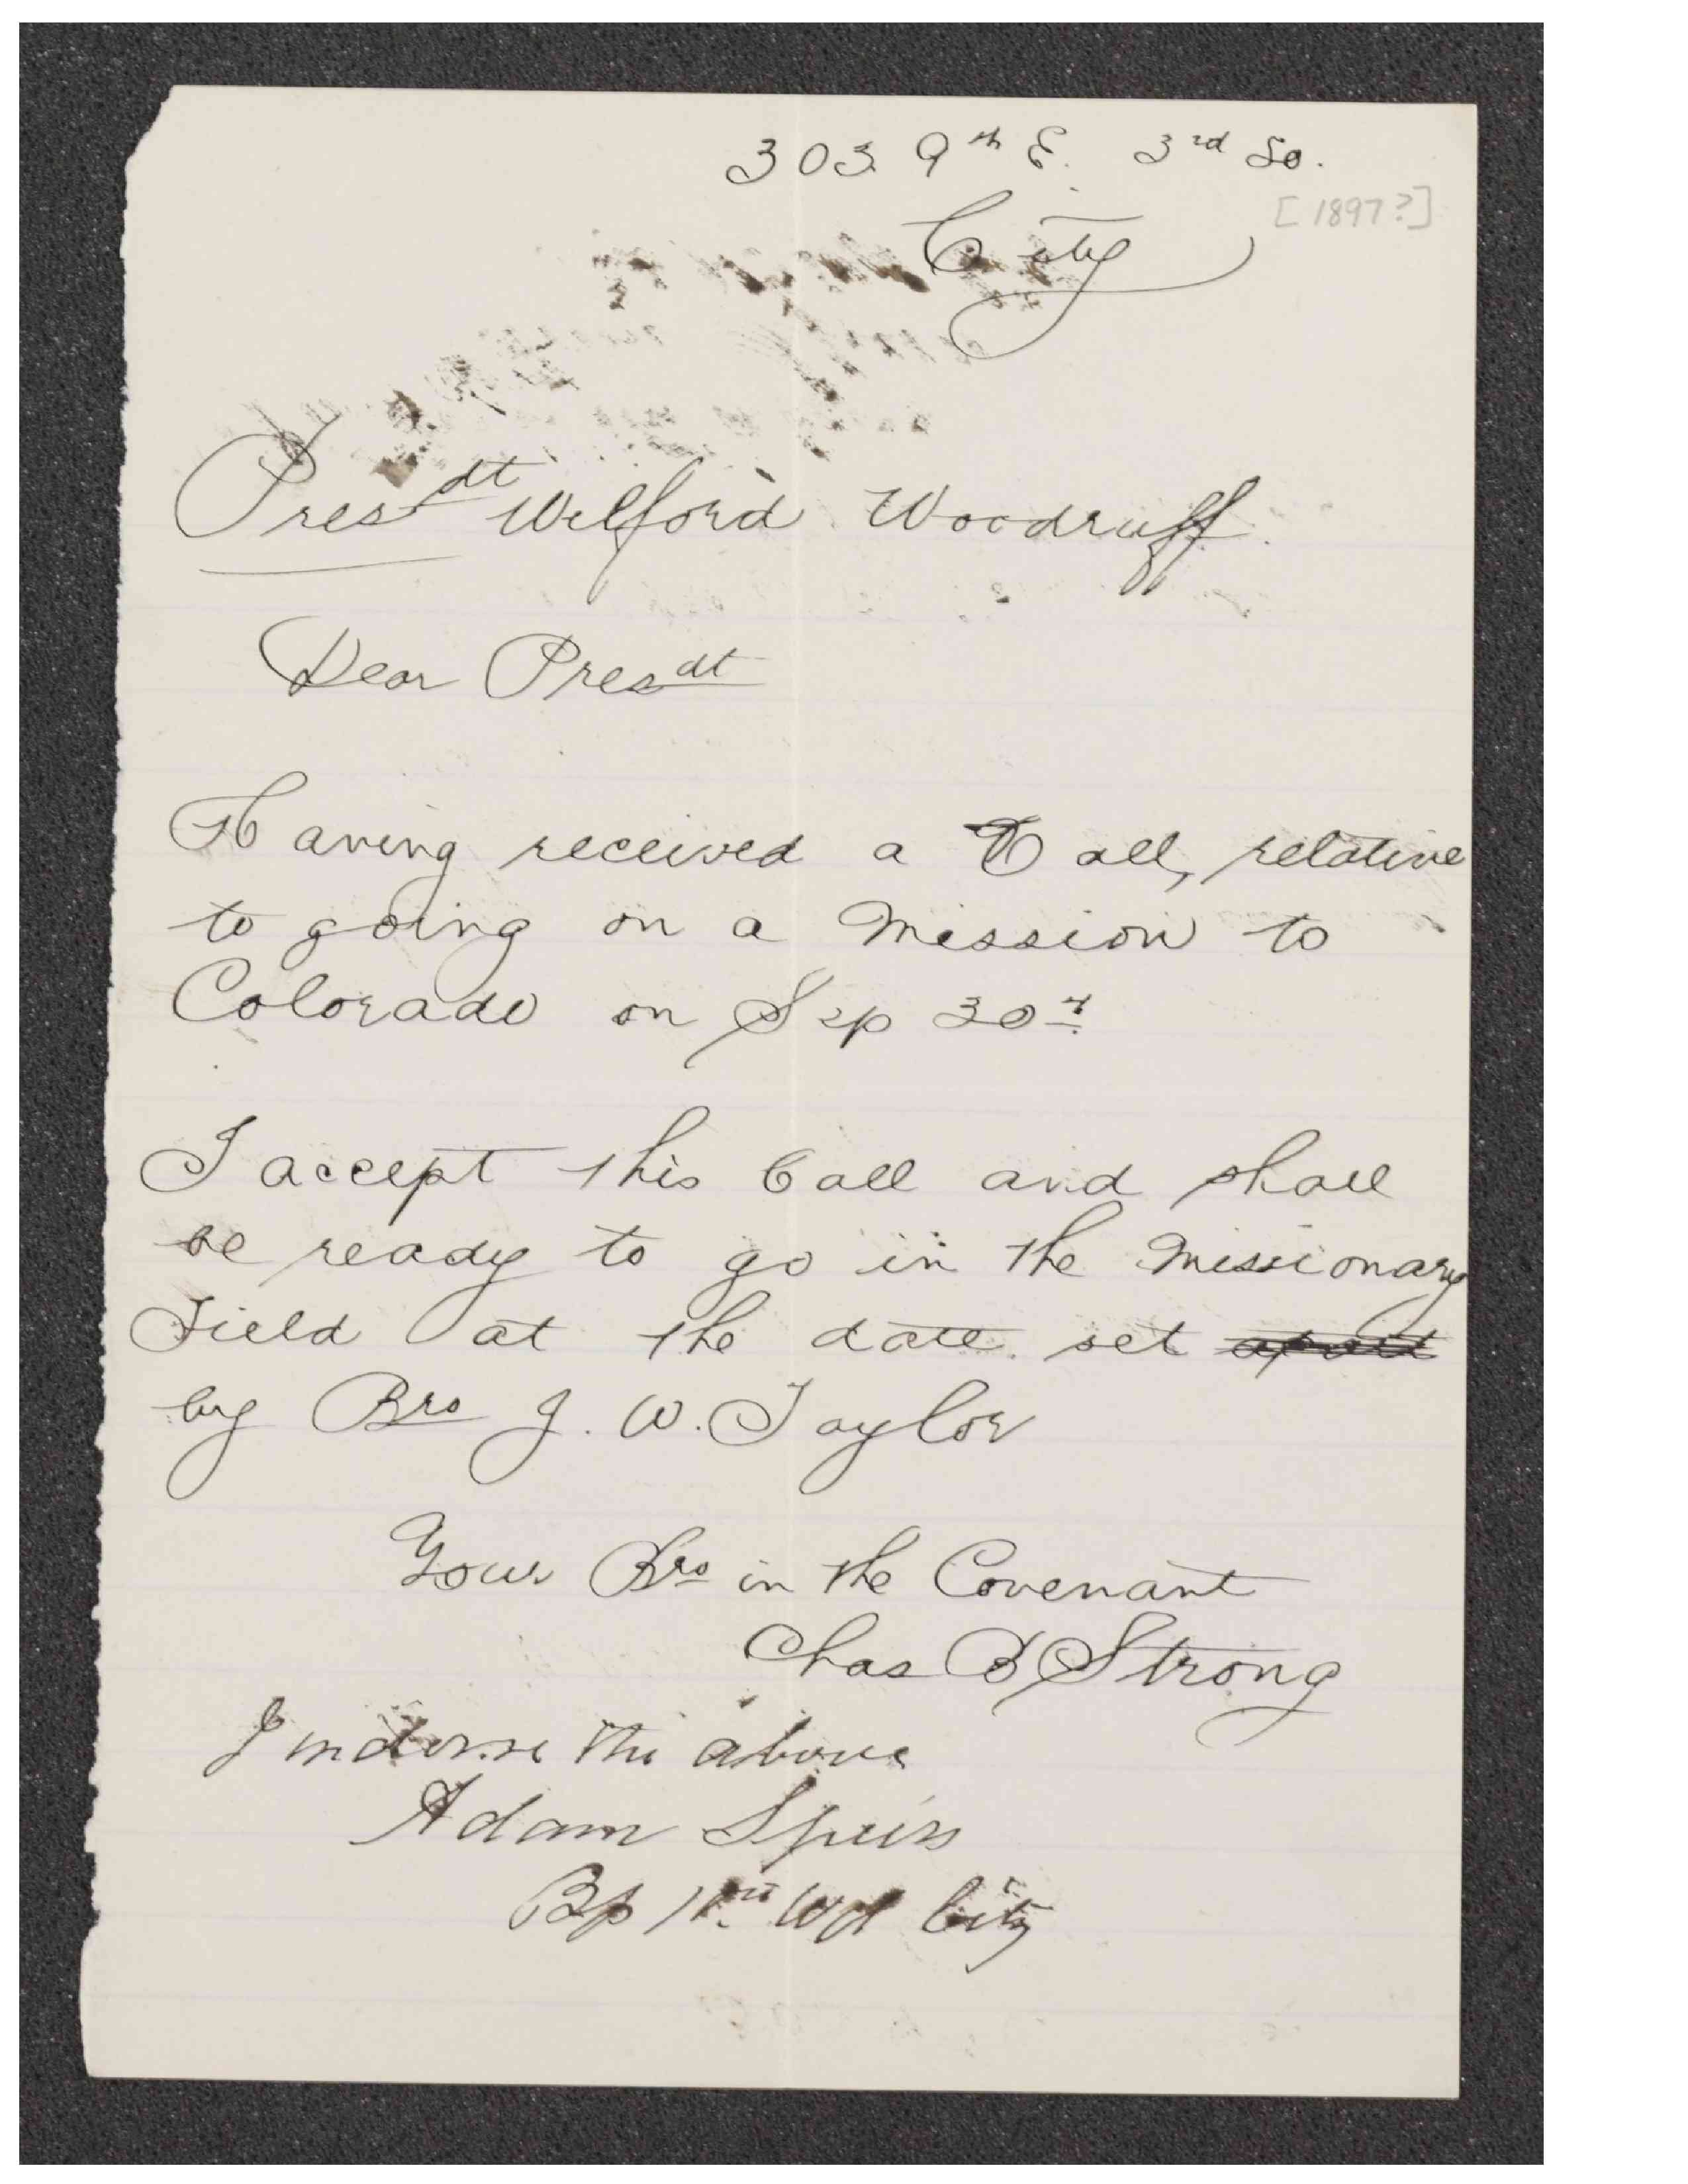 303 9th E. 3rd So.
[1897?]
City
Presdt Wilford Woodruff.
Dear Presdt
Having received a Call, relative
to going on a Mission to
Colorado on Sep 30th
I accept this Call and shall
be ready to go in the Missionary
Field at the date set apart
by Bro J. W. Taylor
Your Bro in the Covenant
Chas B Strong
I indorse the above
Adam Speirs
Bp Wd City